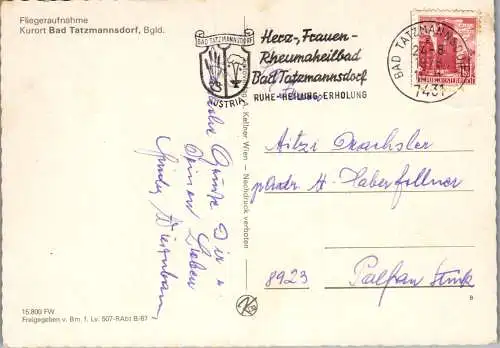 Fliegeraufnahme
Kurort Bad Tatzmannsdorf, Bgld.
BAD TATZMANNSDORF
AUSTRIA
Herz-, Frauen-
Rheumaheilbad
Bad Tatzmannsdorf
RUHE-HEILUNG-ERHOLUNG
BAD TATZMANNSDORF
7431
REPUBLIK ÖSTERREICH
Kellner Wien - Nachdruck verboten
Dir u.
Deinen Lieben
Aitzi Drachsler
p Adr H. Haberfellner
8923 Palfau
15.800 FW
Freigegeben v. Bm. f. Lv. 507-RAbt B-67
B